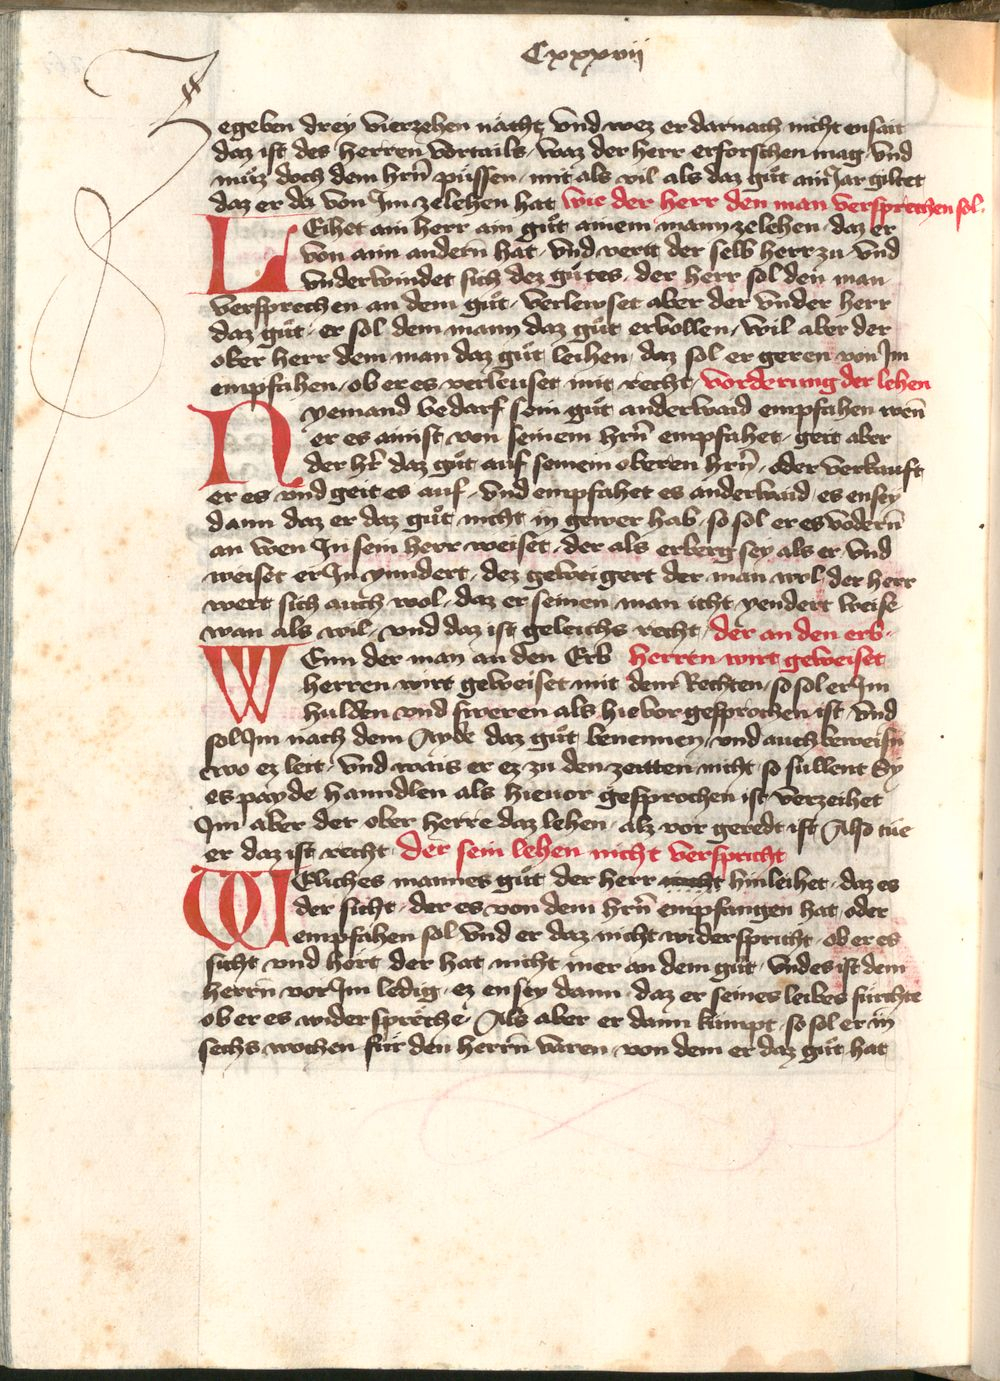 Cxxxvij
Zegeben drey vierzehen nächt vnd wez er darnach nicht ensait
daz ist des herren vortails, waz der herr erforschen mag, vnd
muͦz doch dem hrn̄ püssen, mit als vil als daz guͦt ain Jar giltet
daz er da von Im zelehen hat, wie der herr den man versprechen sol.
LEihet ain herr ain guͦt ainem mann zelehen, daz er
von aim andern̄ hat, vnd vert der selb herr zu, vnd
vnderwindet sich dez guͦtes, der herr sol den man
versprechen an dem guͦt, verlewset aber der vnder herr
daz guͦt, er sol dem mann daz guͦt ervollen, wil aber der
ober herr dem man daz guͦt leihen, daz sol er geren von Im
empfahen, ob er es verleuset mit recht, vorderung der lehen
Nyemand bedarf sein guͦt anderwaid empfahen wen̄
er es ainist von seinem hrn̄ empfahet, geit aber
der hr̄ daz guͦt auf seinem oberen hrn̄, oder verkauft
er es vnd geit es auf, vnd empfahet es anderwaid, es ensey
dann daz er daz guͦt nicht in gewer hab, so sol er es vodern̄
an wen In sein herr weiset, der als erberg sey als er, vnd
weiset er In ynndert, dez geweigert der man wol, der herr
wert sich auch wol, daz er seinen man icht yendert weise
wan als wil, vnd daz ist geleichs recht, der an den erb-
WEnn der man an den Erb herren wirt geweiset
herren wirt geweiset mit dem Rechten, so sol er Im
hulden vnd sweren als hie vor gesprochen ist, vnd
sol Im nach dem Ayde daz guͦt benennen, vnd auch beweisn̄
wo ez leit, vnd wais er ez zu den zeitten nicht, so sullent Sy
es payde hanndlen als hieuor gesprochen ist, verzeihet
Im aber der ober herre daz lehen, alz vor geredt ist, Also tüe
er daz ist recht, der sein lehen nicht verspricht
WEliches mannes guͦt der herr nicht hinleihet, daz es
der sicht, der es von dem hrn̄ empfangen hat, oder
empfahen sol, vnd er daz nicht widerspricht, ob er es
sicht vnd hört, der hat nicht mer an dem guͦt, vnd es ist dem
herrn̄ vor Im ledig, ez ensey dann, daz er seines leibes fürchte
ob er es widerspreche, Als aber er dann kümpt, so sol er in
sechs wochen für den herrn̄ varen, von dem er daz guͦt hat